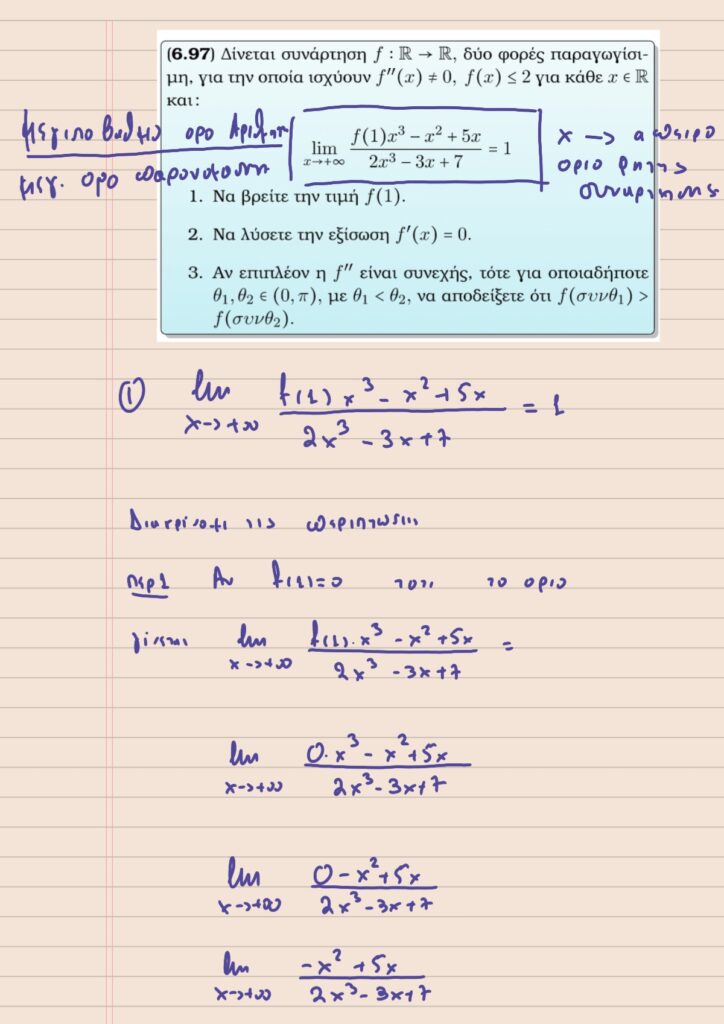 (6.97) Δίνεται συνάρτηση f : ℝ → ℝ, δύο φορές παραγωγίσι-
μη, για την οποία ισχύουν f''(x) ≠ 0, f(x) ≤ 2 για κάθε x ∈ ℝ
και:
μεγιστοβαθμιο ορο Αριθμητη
μεγ. ορο παρονομαστη
lim x→+∞ (f(1)x³ − x² + 5x)/(2x³ − 3x + 7) = 1
x -> απειρο
οριο ρητης
συναρτησης
1. Να βρείτε την τιμή f(1).
2. Να λύσετε την εξίσωση f'(x) = 0.
3. Αν επιπλέον η f'' είναι συνεχής, τότε για οποιαδήποτε
θ₁, θ₂ ∈ (0, π), με θ₁ < θ₂, να αποδείξετε ότι f(συνθ₁) >
f(συνθ₂).
① lim x->+∞ (f(1)x³ - x² + 5x)/(2x³ - 3x + 7) = 1
Διακρίνουμε τις περιπτωσεις
περ1 Αν f(1)=0 τοτε το οριο
γίνεται lim x->+∞ (f(1)·x³ - x² + 5x)/(2x³ - 3x + 7) =
lim x->+∞ (0·x³ - x² + 5x)/(2x³ - 3x + 7)
lim x->+∞ (0 - x² + 5x)/(2x³ - 3x + 7)
lim x->+∞ (-x² + 5x)/(2x³ - 3x + 7)